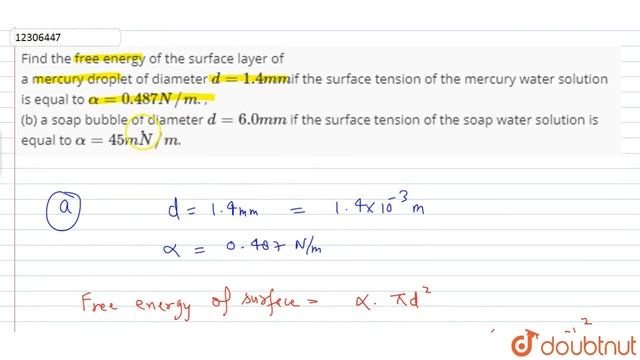 12306447
Find the free energy of the surface layer of
a mercury droplet of diameter d = 1.4mmif the surface tension of the mercury water solution
is equal to α = 0.487N/m. ,
(b) a soap bubble of diameter d = 6.0mm if the surface tension of the soap water solution is
equal to α = 45mN/m.
a d = 1.4mm = 1.4×10⁻³ m
α = 0.487 N/m
Free energy of surface = α. πd²
doubtnut